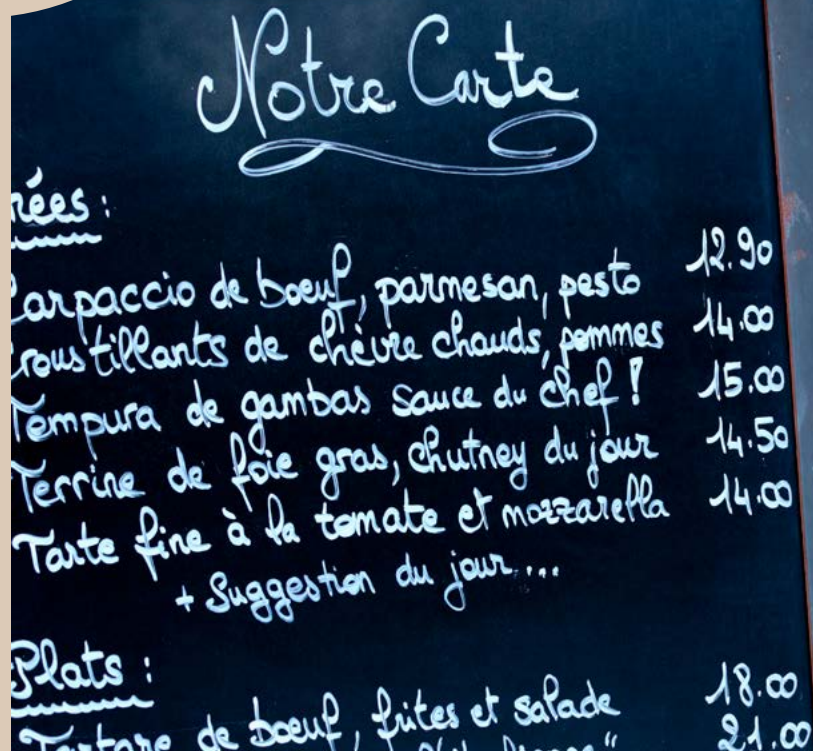 Notre Carte
rées :
Carpaccio de boeuf, parmesan, pesto 12.90
Croustillants de chèvre chauds, pommes 14.00
Tempura de gambas sauce du chef ! 15.00
Terrine de foie gras, chutney du jour 14.50
Tarte fine à la tomate et mozzarella 14.00
+ Suggestion du jour...
Plats :
Tartare de boeuf, frites et salade 18.00
21.00